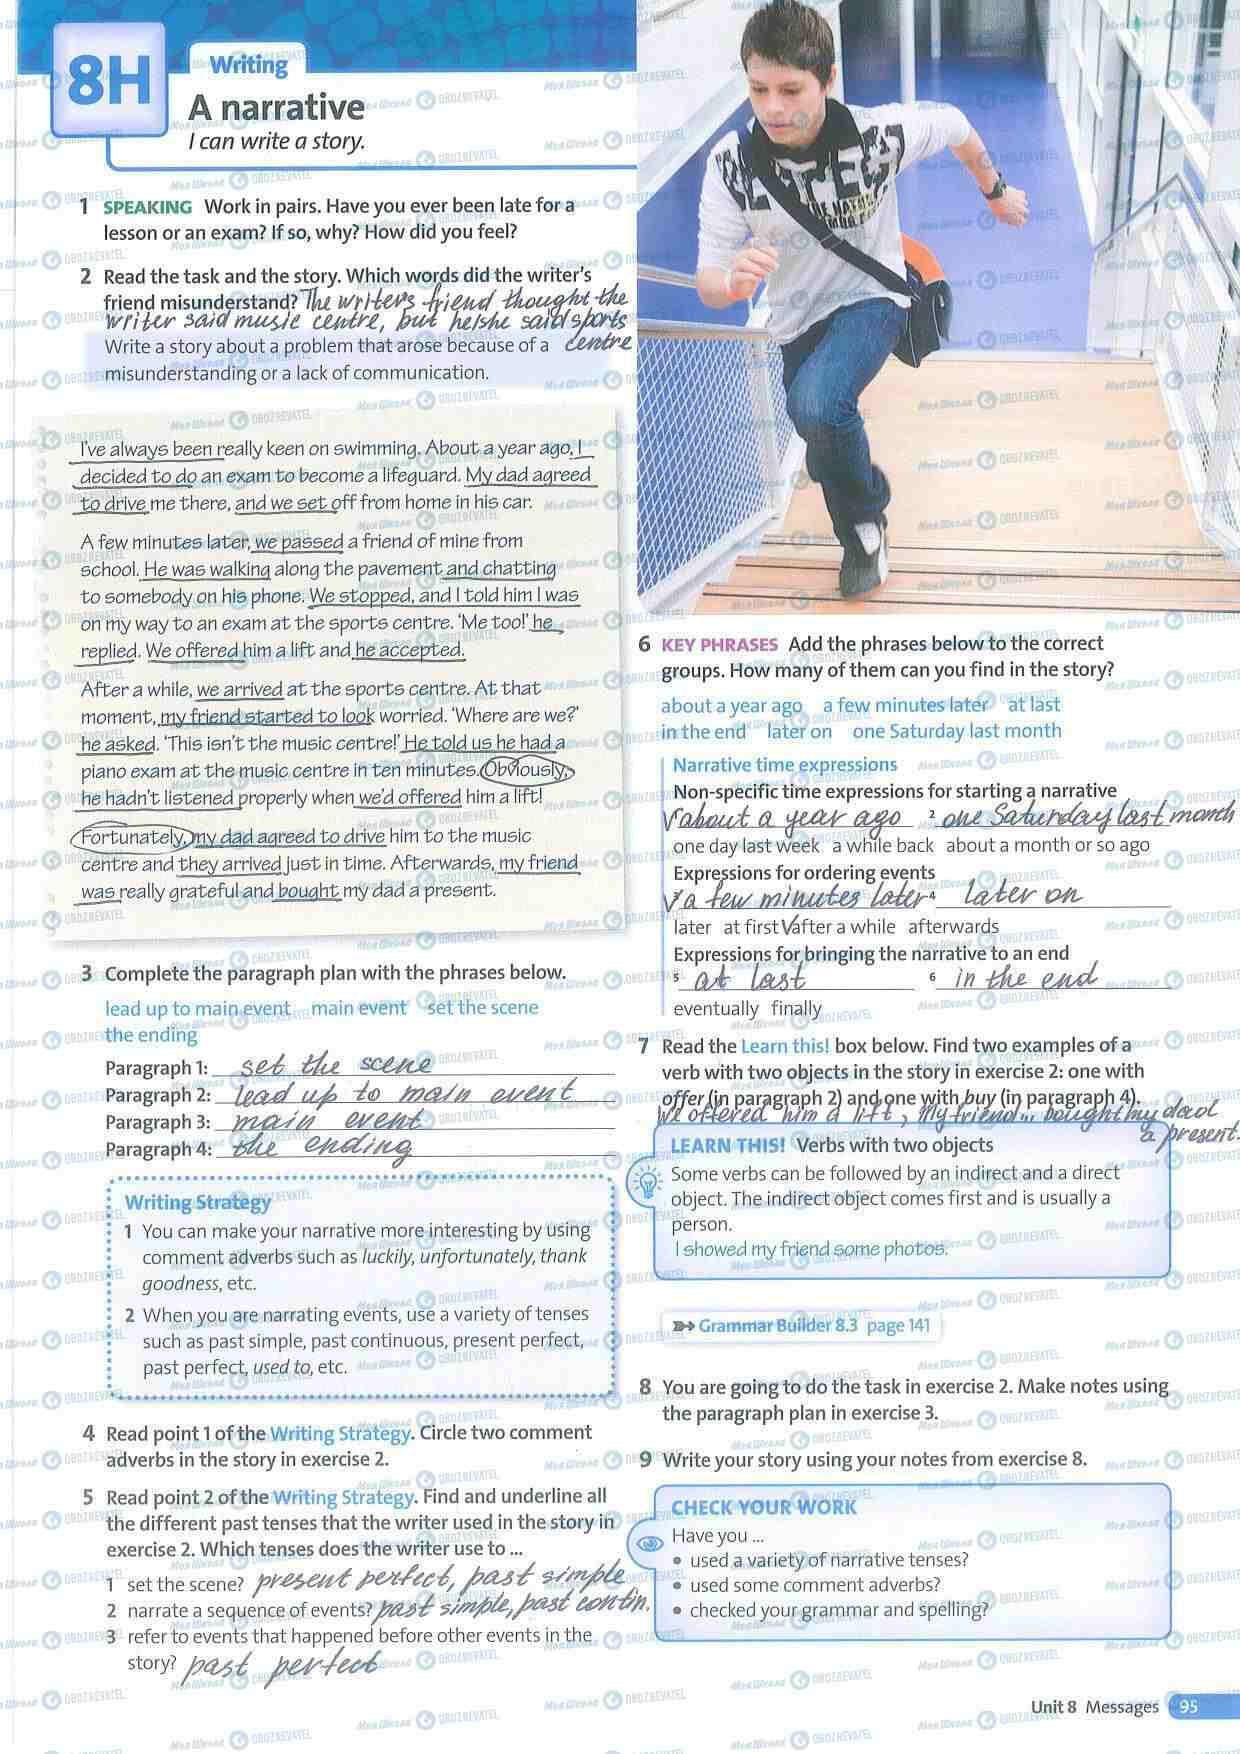 8H
Writing
A narrative
I can write a story.
1 SPEAKING Work in pairs. Have you ever been late for a
lesson or an exam? If so, why? How did you feel?
2 Read the task and the story. Which words did the writer's
friend misunderstand? The writer's friend thought the
writer said music centre, but he/she said sports
centre
Write a story about a problem that arose because of a
misunderstanding or a lack of communication.
I've always been really keen on swimming. About a year ago, I
decided to do an exam to become a lifeguard. My dad agreed
to drive me there, and we set off from home in his car.
A few minutes later, we passed a friend of mine from
school. He was walking along the pavement and chatting
to somebody on his phone. We stopped, and I told him I was
on my way to an exam at the sports centre. 'Me too!' he
replied. We offered him a lift and he accepted.
After a while, we arrived at the sports centre. At that
moment, my friend started to look worried. 'Where are we?'
he asked. 'This isn't the music centre!' He told us he had a
piano exam at the music centre in ten minutes. Obviously,
he hadn't listened properly when we'd offered him a lift!
Fortunately, my dad agreed to drive him to the music
centre and they arrived just in time. Afterwards, my friend
was really grateful and bought my dad a present.
3 Complete the paragraph plan with the phrases below.
lead up to main event main event set the scene
the ending
Paragraph 1: set the scene
Paragraph 2: lead up to main event
Paragraph 3: main event
Paragraph 4: the ending
Writing Strategy
1 You can make your narrative more interesting by using
comment adverbs such as luckily, unfortunately, thank
goodness, etc.
2 When you are narrating events, use a variety of tenses
such as past simple, past continuous, present perfect,
past perfect, used to, etc.
4 Read point 1 of the Writing Strategy. Circle two comment
adverbs in the story in exercise 2.
5 Read point 2 of the Writing Strategy. Find and underline all
the different past tenses that the writer used in the story in
exercise 2. Which tenses does the writer use to ...
1 set the scene? present perfect, past simple
2 narrate a sequence of events? past simple, past contin.
3 refer to events that happened before other events in the
story? past perfect
6 KEY PHRASES Add the phrases below to the correct
groups. How many of them can you find in the story?
about a year ago a few minutes later at last
in the end later on one Saturday last month
Narrative time expressions
Non-specific time expressions for starting a narrative
√about a year ago 2 one Saturday last month
one day last week a while back about a month or so ago
Expressions for ordering events
√a few minutes later 4 later on
later at first √after a while afterwards
Expressions for bringing the narrative to an end
5 at last 6 in the end
eventually finally
7 Read the Learn this! box below. Find two examples of a
verb with two objects in the story in exercise 2: one with
offer (in paragraph 2) and one with buy (in paragraph 4).
We offered him a lift, My friend... bought my dad
a present.
LEARN THIS! Verbs with two objects
Some verbs can be followed by an indirect and a direct
object. The indirect object comes first and is usually a
person.
I showed my friend some photos.
Grammar Builder 8.3 page 141
8 You are going to do the task in exercise 2. Make notes using
the paragraph plan in exercise 3.
9 Write your story using your notes from exercise 8.
CHECK YOUR WORK
Have you ...
• used a variety of narrative tenses?
• used some comment adverbs?
• checked your grammar and spelling?
Unit 8 Messages 95